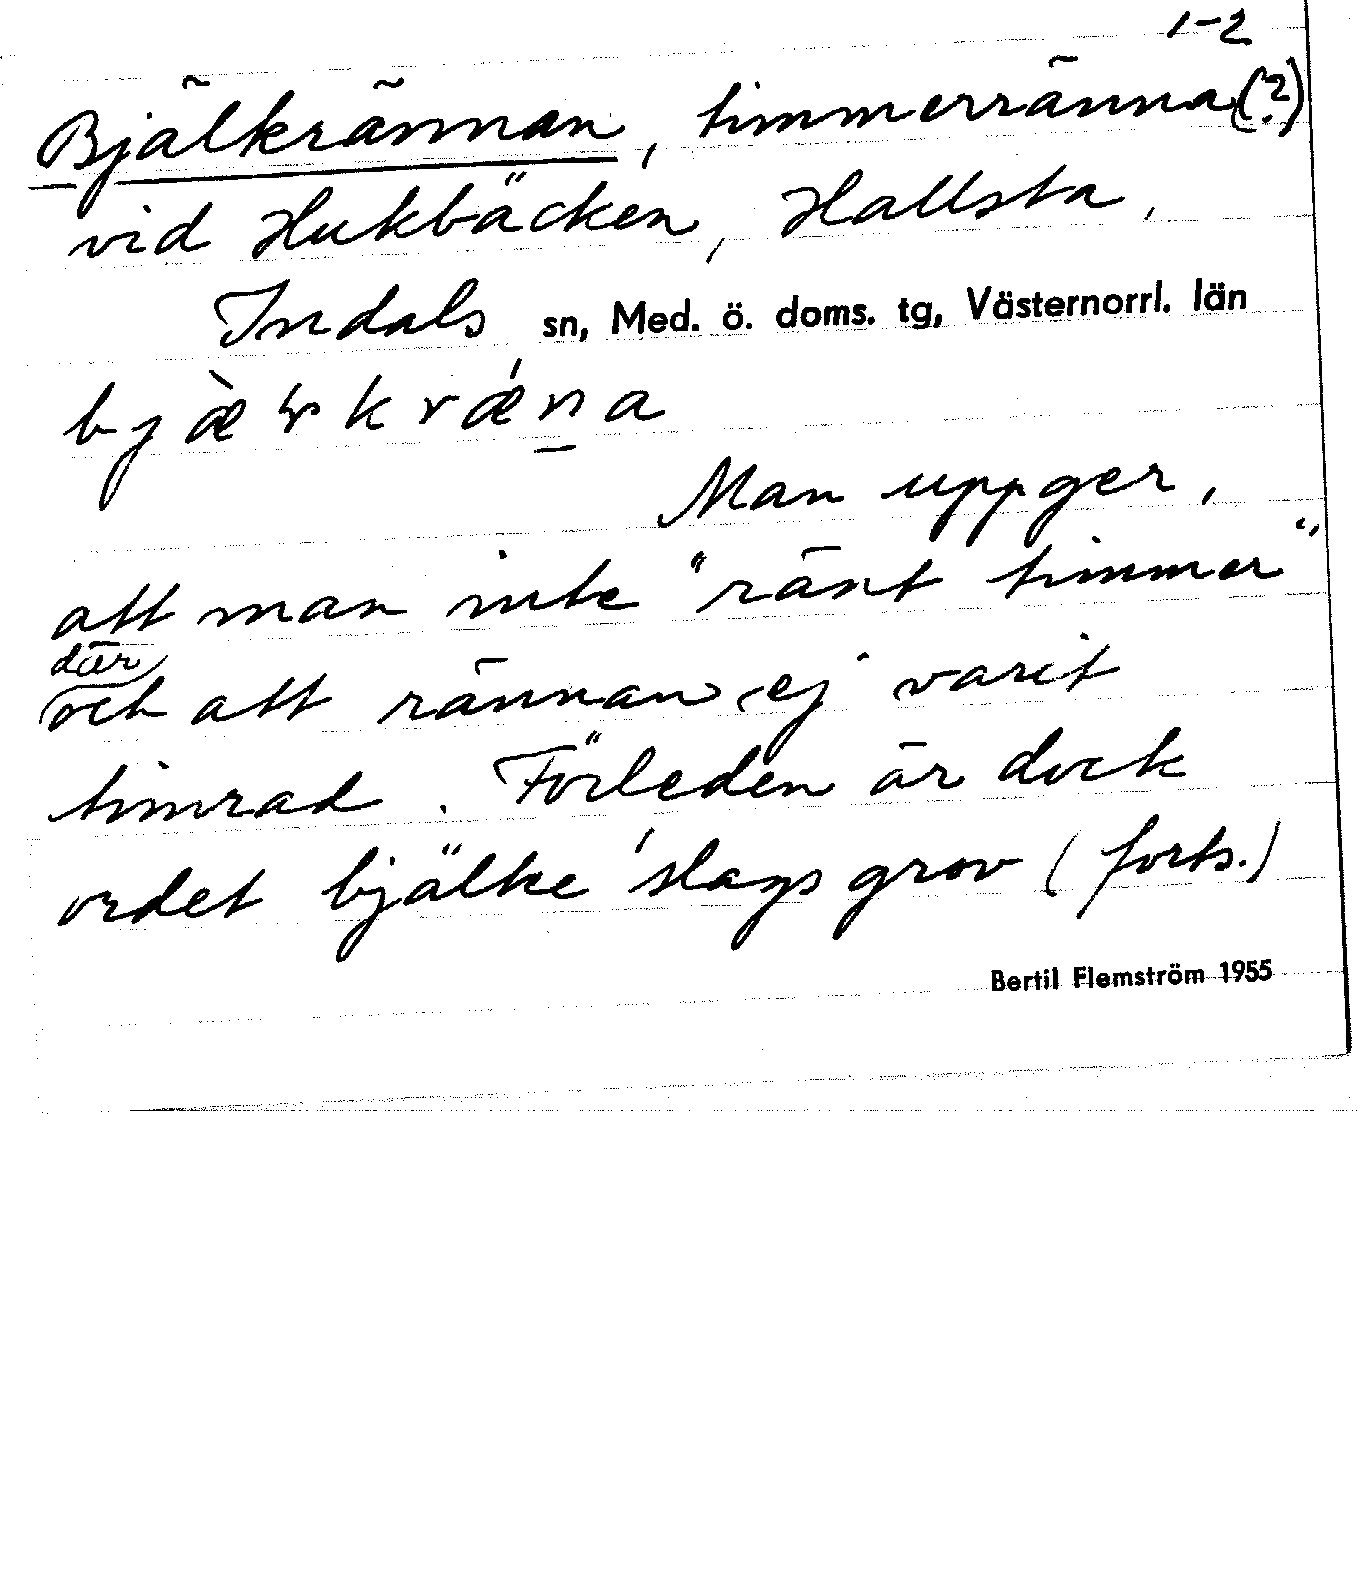 1-2
Bjälkrännan, timmerränna(?)
vid Hukbäcken, Hallsta,
Indals sn, Med. ö. doms. tg, Västernorrl. län
Man uppger,
att man inte "ränt timmer"
där
och att rännan ej varit
timrad. Förleden är dock
ordet bjälke 'slags grov (forts.)
Bertil Flemström 1955